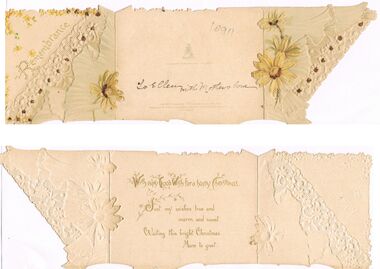 Remembrance
1890
To Ellen with Mothers love
With every Good Wish for a happy Christmas.
Just my wishes true and
warm and sweet
Waiting this bright Christmas
Morn to greet.